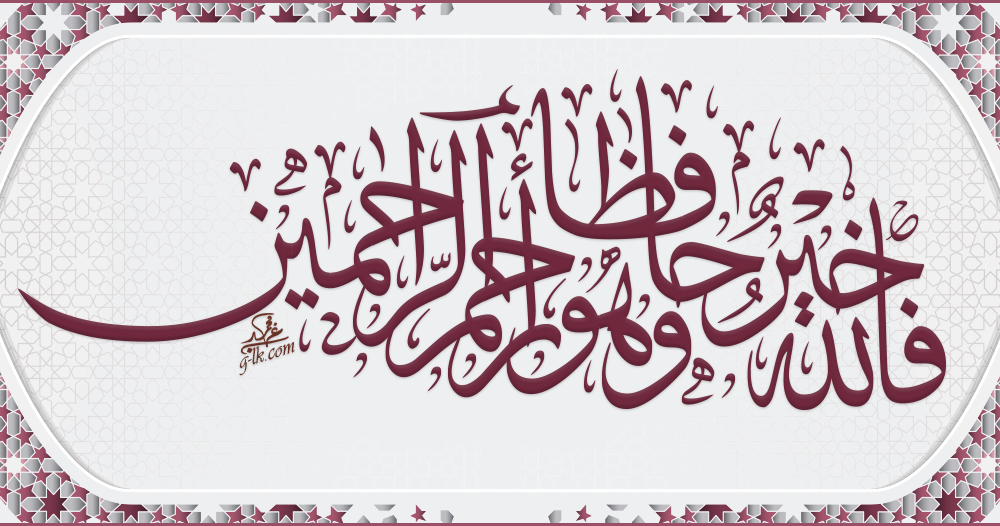 فالله خير حافظا وهو أرحم الراحمين
غركن
g-lk.com